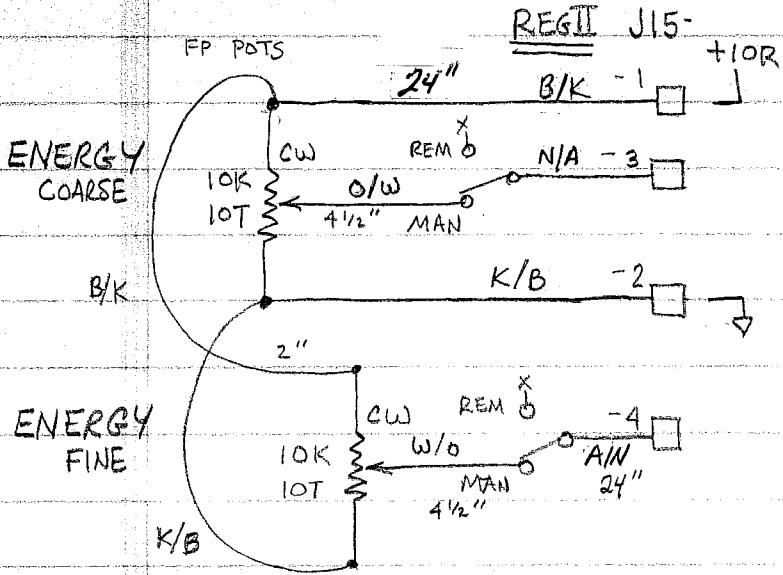 REGII J15-
FP POTS
+10R
24"
B/K -1
ENERGY
COARSE
CW
REM X
N/A -3
10K
10T
O/W
4 1/2"
MAN
B/K
K/B -2
2"
ENERGY
FINE
CW
REM X
-4
10K
10T
W/O
MAN
4 1/2"
A/N
24"
K/B